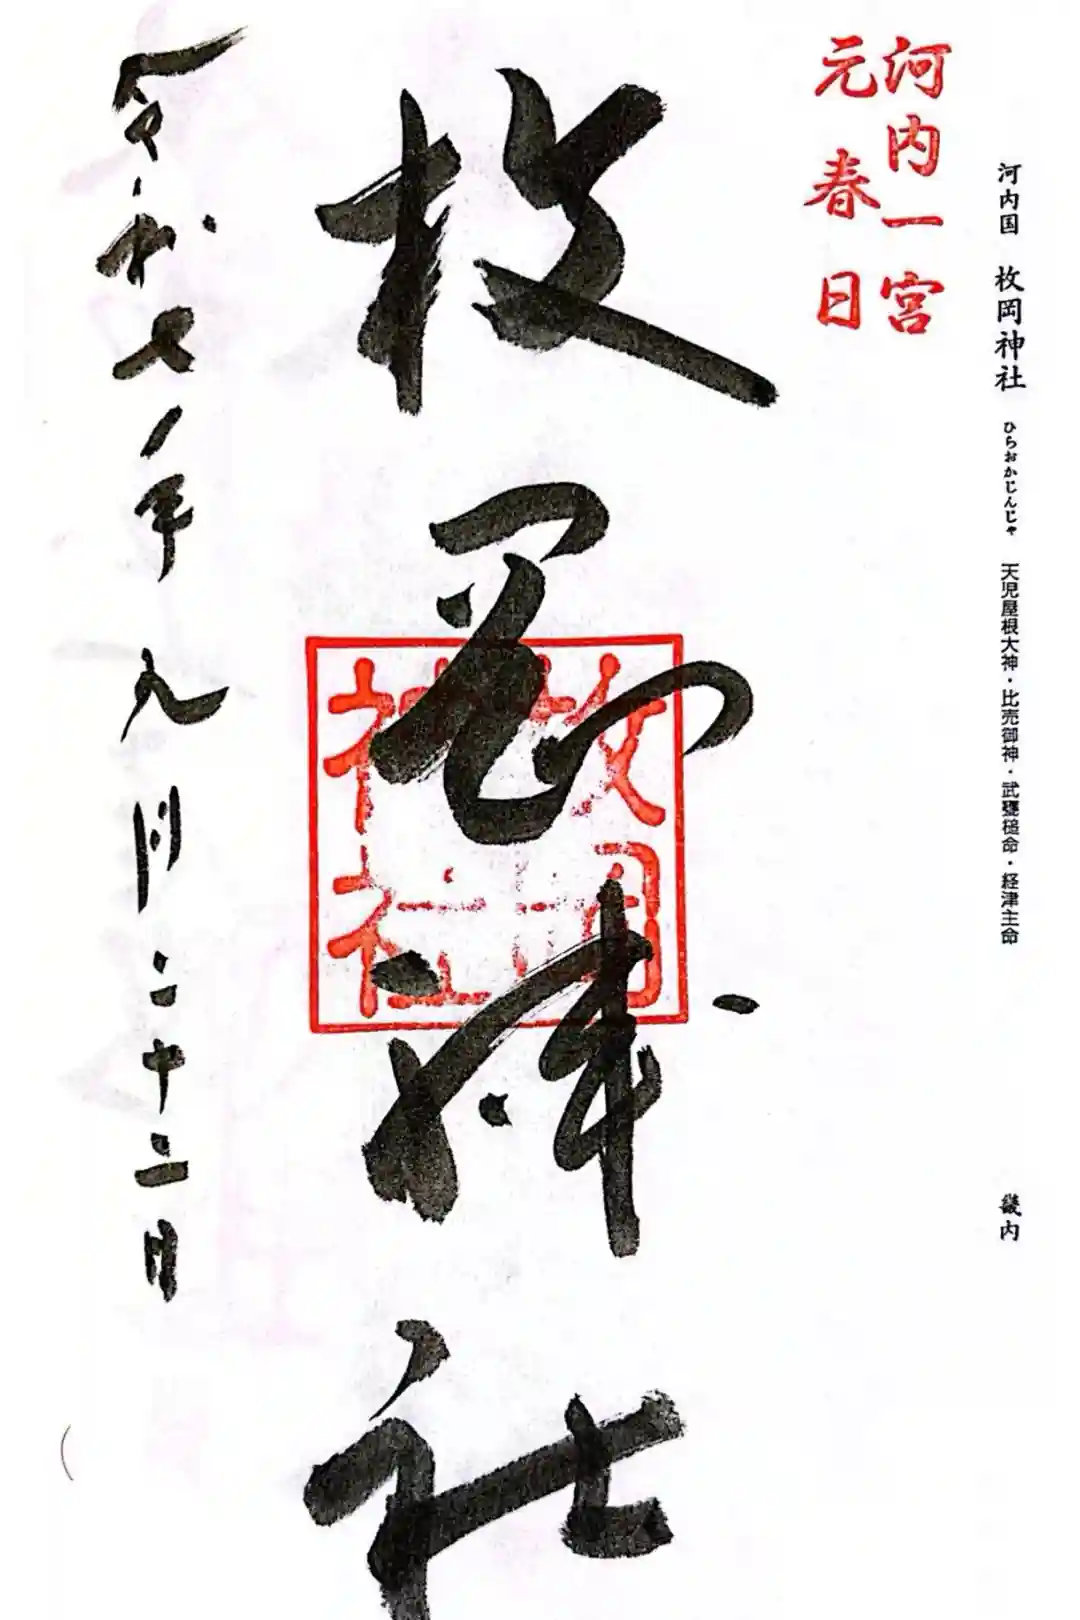 河内国 枚岡神社 ひらおかじんじゃ 天児屋根大神・比売御神・武甕槌命・経津主命 畿内
河内一宮
元春日
枚岡神社
枚岡
神社
令和七年九月二十二日